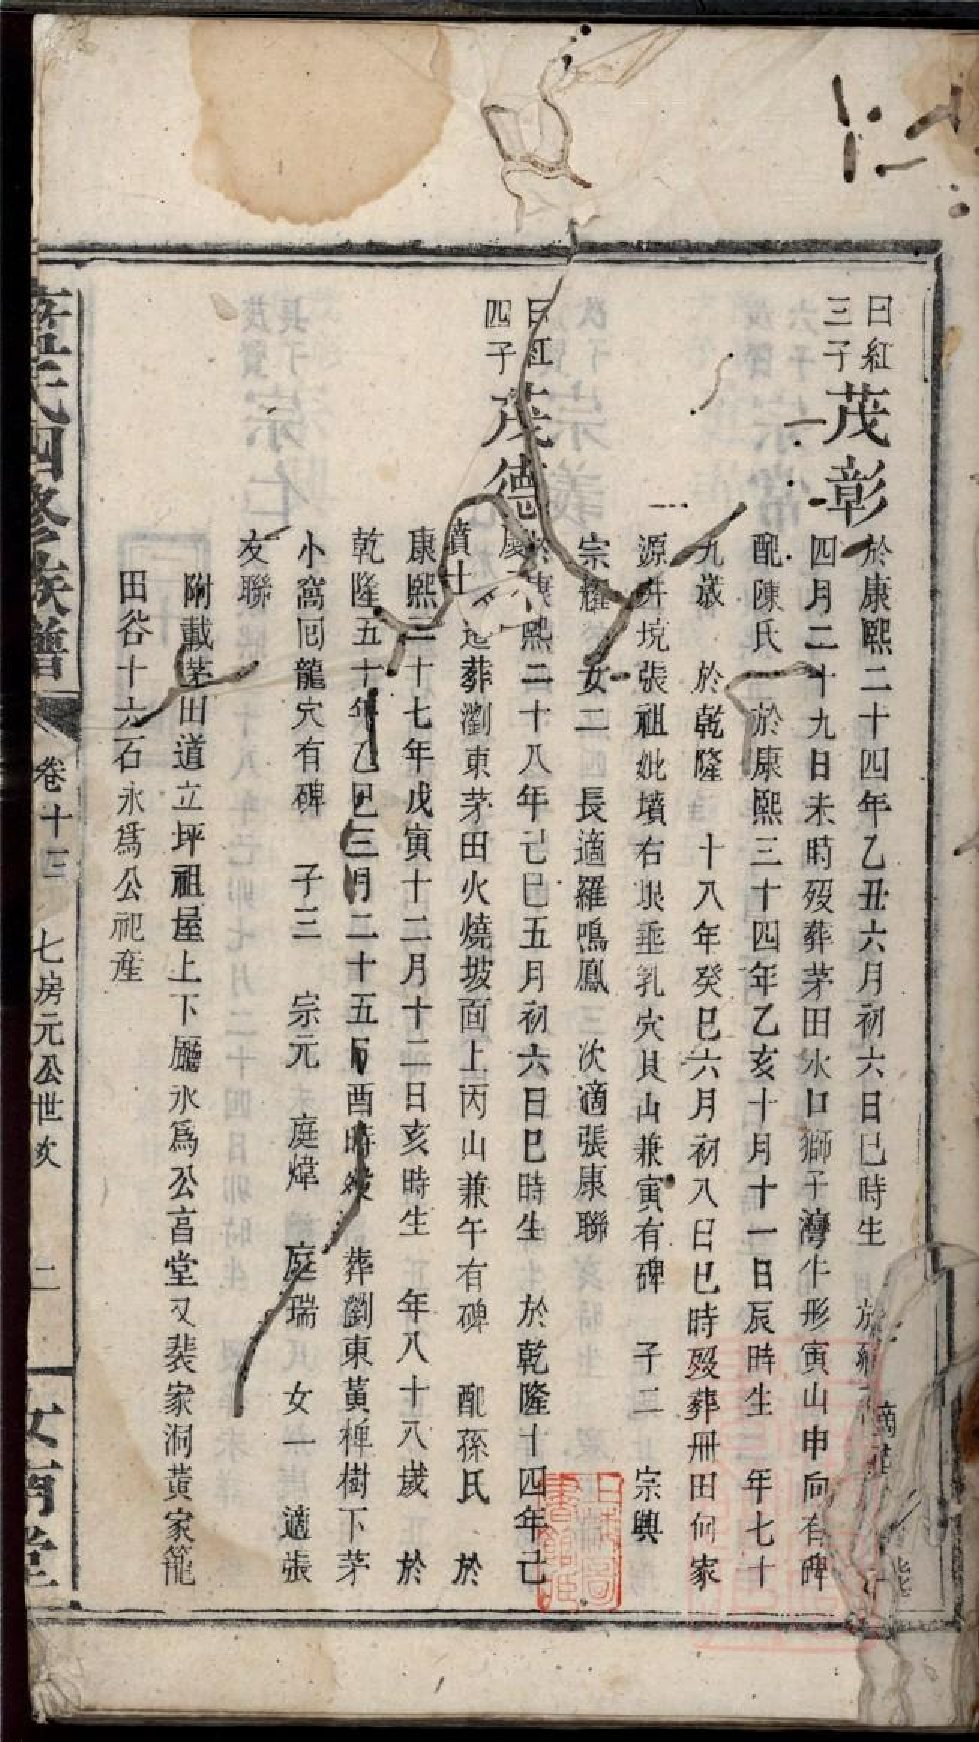 曰紅
三子
茂彰
於康熙二十四年乙丑六月初六日巳時生 於乾
四月二十九日未時歿葬茅田水口獅子灣牛形寅山申向有碑
配陳氏 於康熙三十四年乙亥十月十一日辰時生 年七十
九歲 於乾隆 十八年癸巳六月初八日巳時歿葬冊田何家
源井境張祖妣墳右艮垂乳穴艮山兼寅有碑 子二 宗興
宗耀 女二 長適羅鳴鳳 次適張康聯
曰紅
四子
茂德
於康熙二十八年己巳五月初六日巳時生 於乾隆十四年己
葬瀏東茅田火燒坡面上丙山兼午有碑 配孫氏 於
康熙三十七年戊寅十二月十二日亥時生 年八十八歲 於
乾隆五十年乙巳三月二十五 酉時歿 葬瀏東黃椑樹下茅
小窩囘龍穴有碑 子三 宗元 庭煒 庭瑞 女一 適張
友聯
附載茅田道立坪祖屋上下廳永爲公言堂又裴家洞黃家籠
田谷十六石永爲公祀產
氏四修族譜
卷十三
七房元公世次
二
女南堂